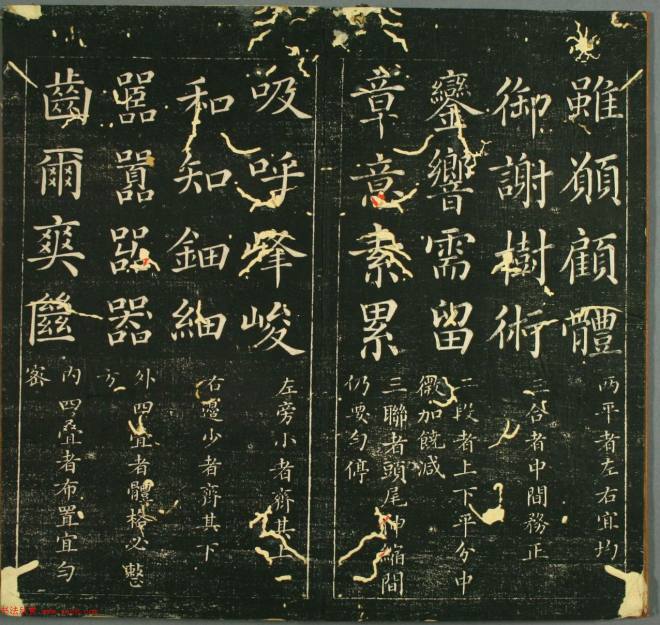 雖願顧體
兩平者左右宜均
御謝樹術
三合者中間務正
鑾響需留
二段者上下平分中
微加饒减
章意素累
三聯者頭尾伸縮間
仍要勻停
吸呼峰峻
左旁小者齊其上
和知鈿細
右邊少者齊其下
嚚囂器器
外四疊者體格必整
方
齒爾爽
內四疊者布置宜勻
密